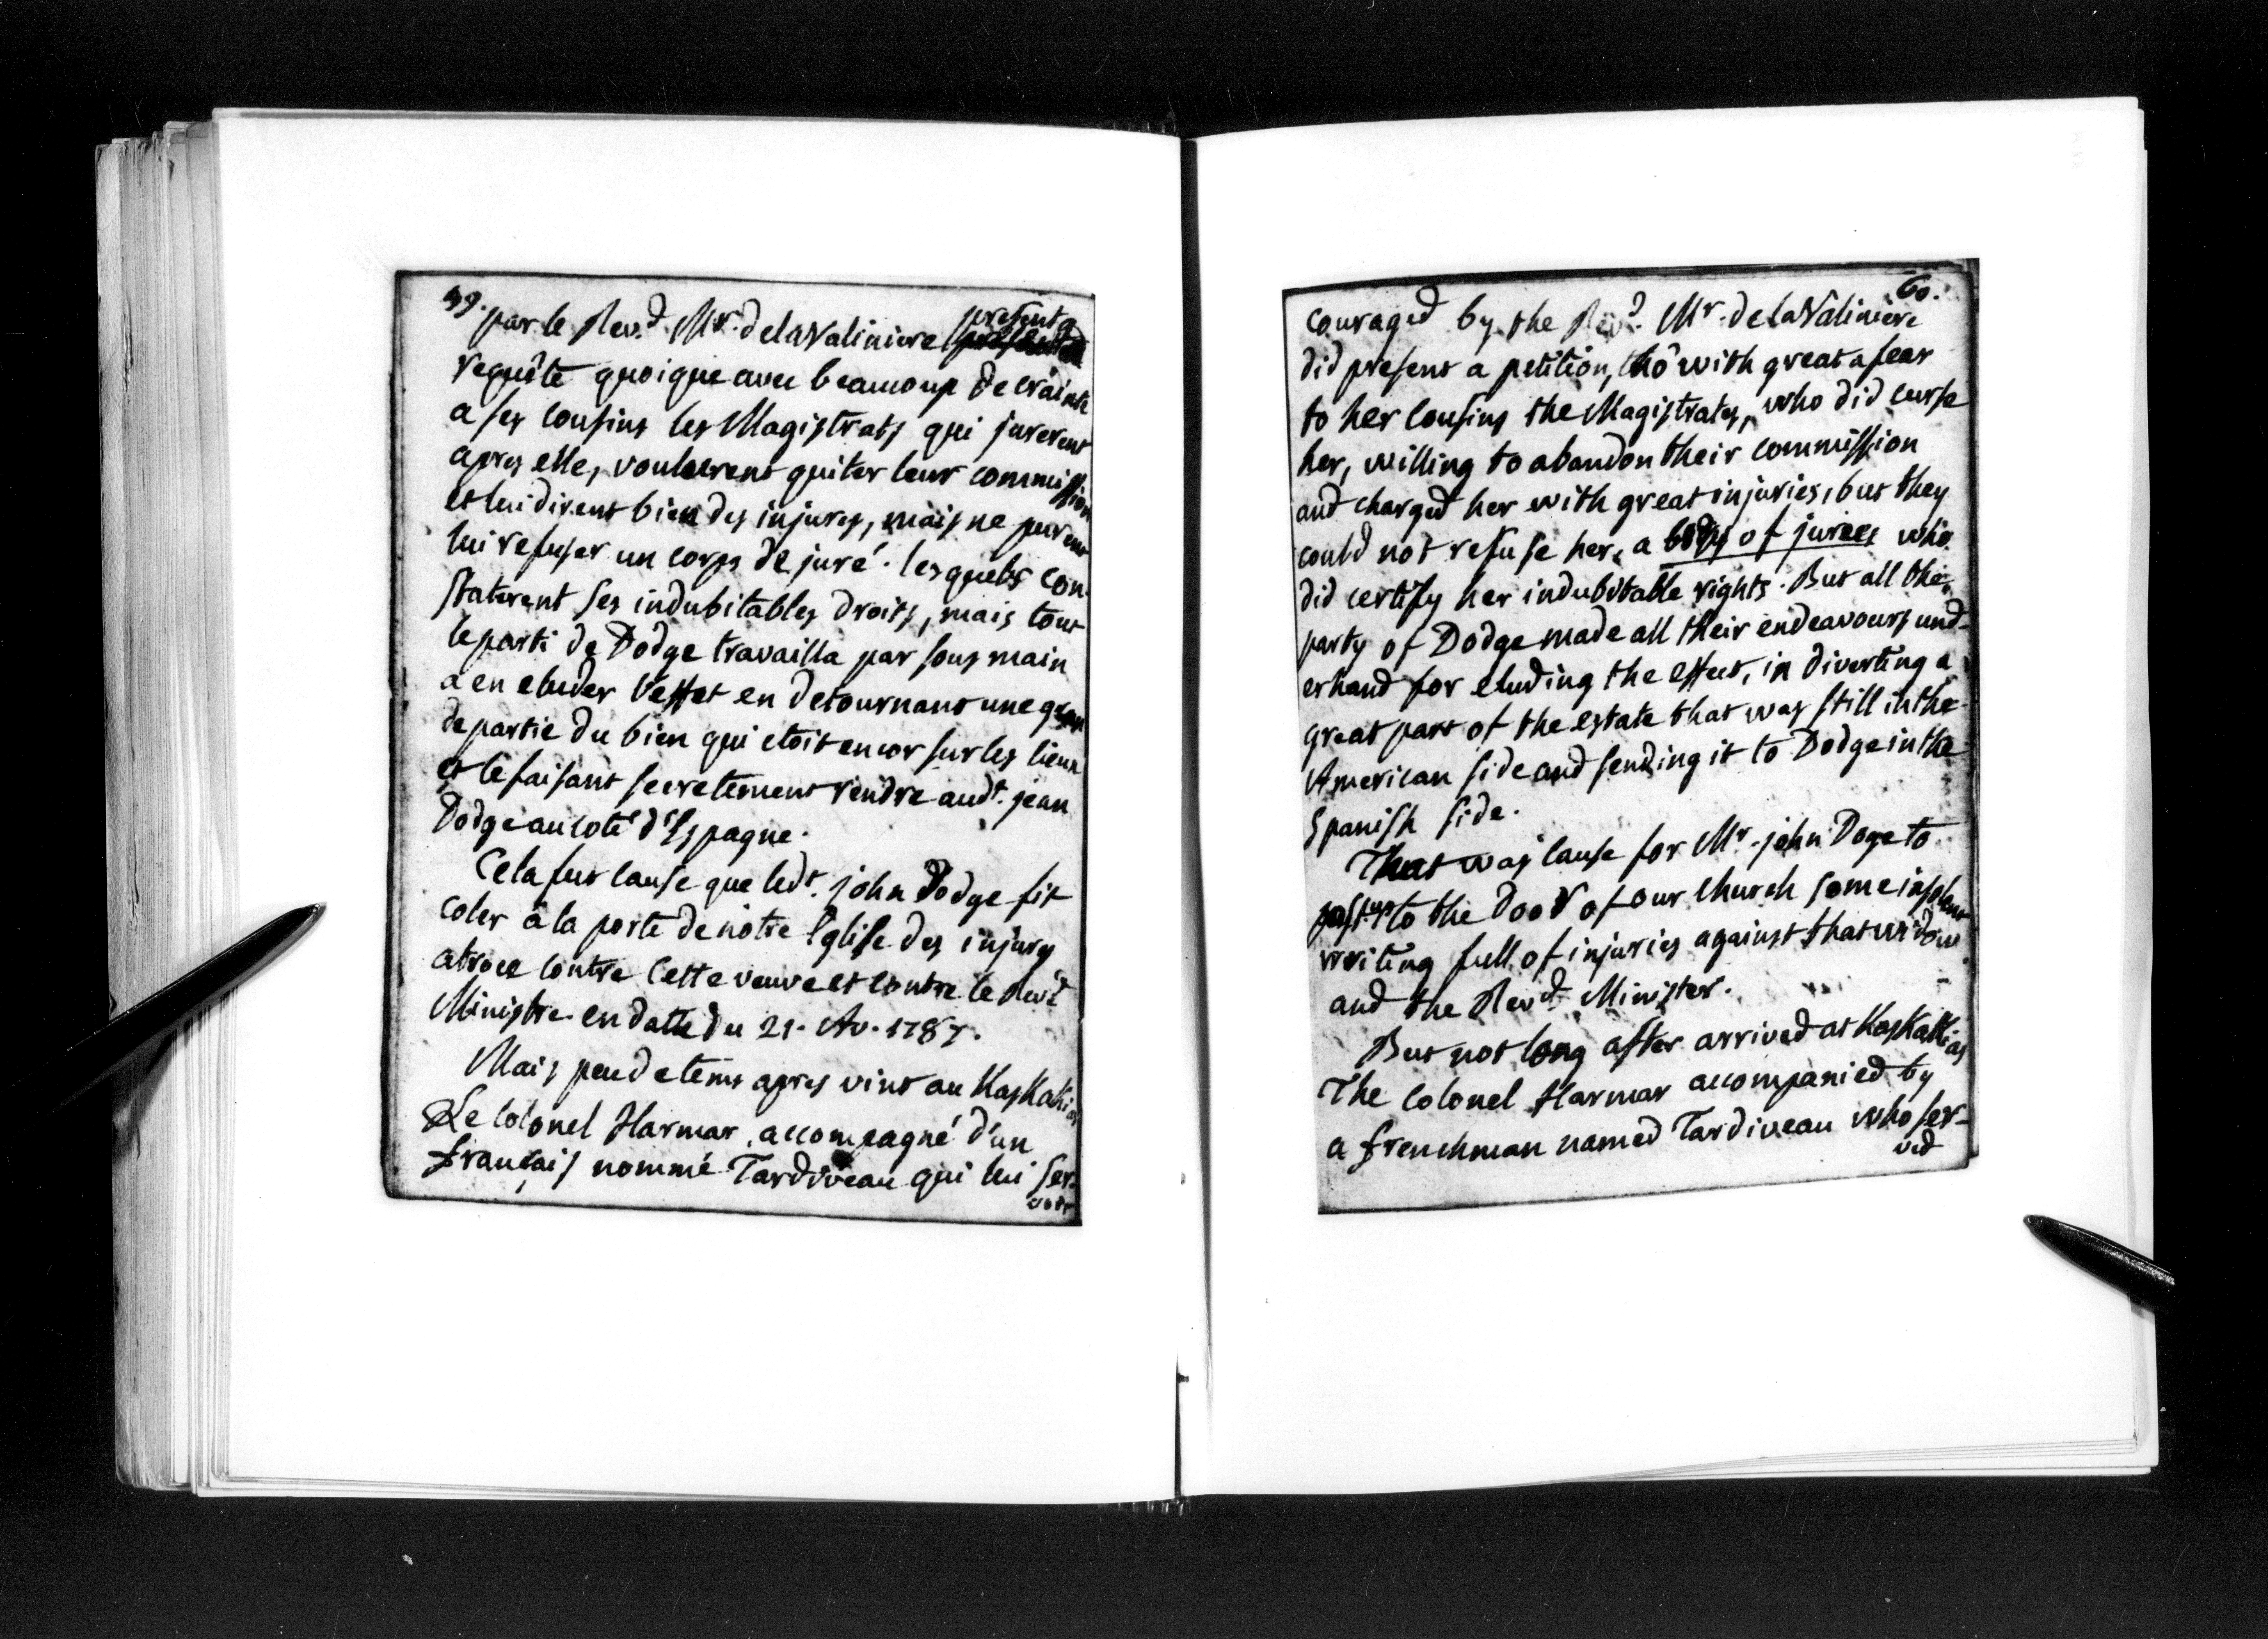 59.
par le Rev.d Mr. de la Valiniere presenta
requête quoique avec beaucoup de crainte
a ses cousins les Magistrats qui jurerent
apres elle, voulurent quiter leur commission
et lui dirent bien des injures, mais ne purent
lui refuser un corps de juré. lesquels con-
staterent ses indubitables droits, mais tout
le parti de Dodge travailla par sous main
a en eluder l'effet en detournant une gran
de partie du bien qui etoit encor sur les lieux
et le faisant secretement rendre audt. jean
Dodge au coté d'Espagne.
Cela fut cause que ledt. john Dodge fit
coler à la porte de nôtre Eglise des injures
atroce contre cette veuve et contre le Revd
Ministre en datte du 21. Av. 1787.
Mais peu de tems apres vint au Kaskakias
Le Colonel Harmar accompagné d'un
français nommé Tardiveau qui lui ser-
voit
60.
couraged by the Revd. Mr. de la Valiniere
did present a petition, tho' with great a fear
to her cousins the Magistrates, who did curse
her, willing to abandon their commission
and charged her with great injuries, but they
could not refuse her, a body of jurees who
did certify her indubitable rights. But all the
party of Dodge made all their endeavours und-
erhand for eluding the effect, in diverting a
great part of the estate that was still in the
American side and sending it to Dodge in the
Spanish side.
That was cause for Mr. john Doge to
past up to the door of our church some insolent
writing full of injuries against that widow
and the Revd. Minister.
But not long after arrived at Kaskakias
The Colonel Harmar accompanied by
a frenchman named Tardiveau who ser-
ved